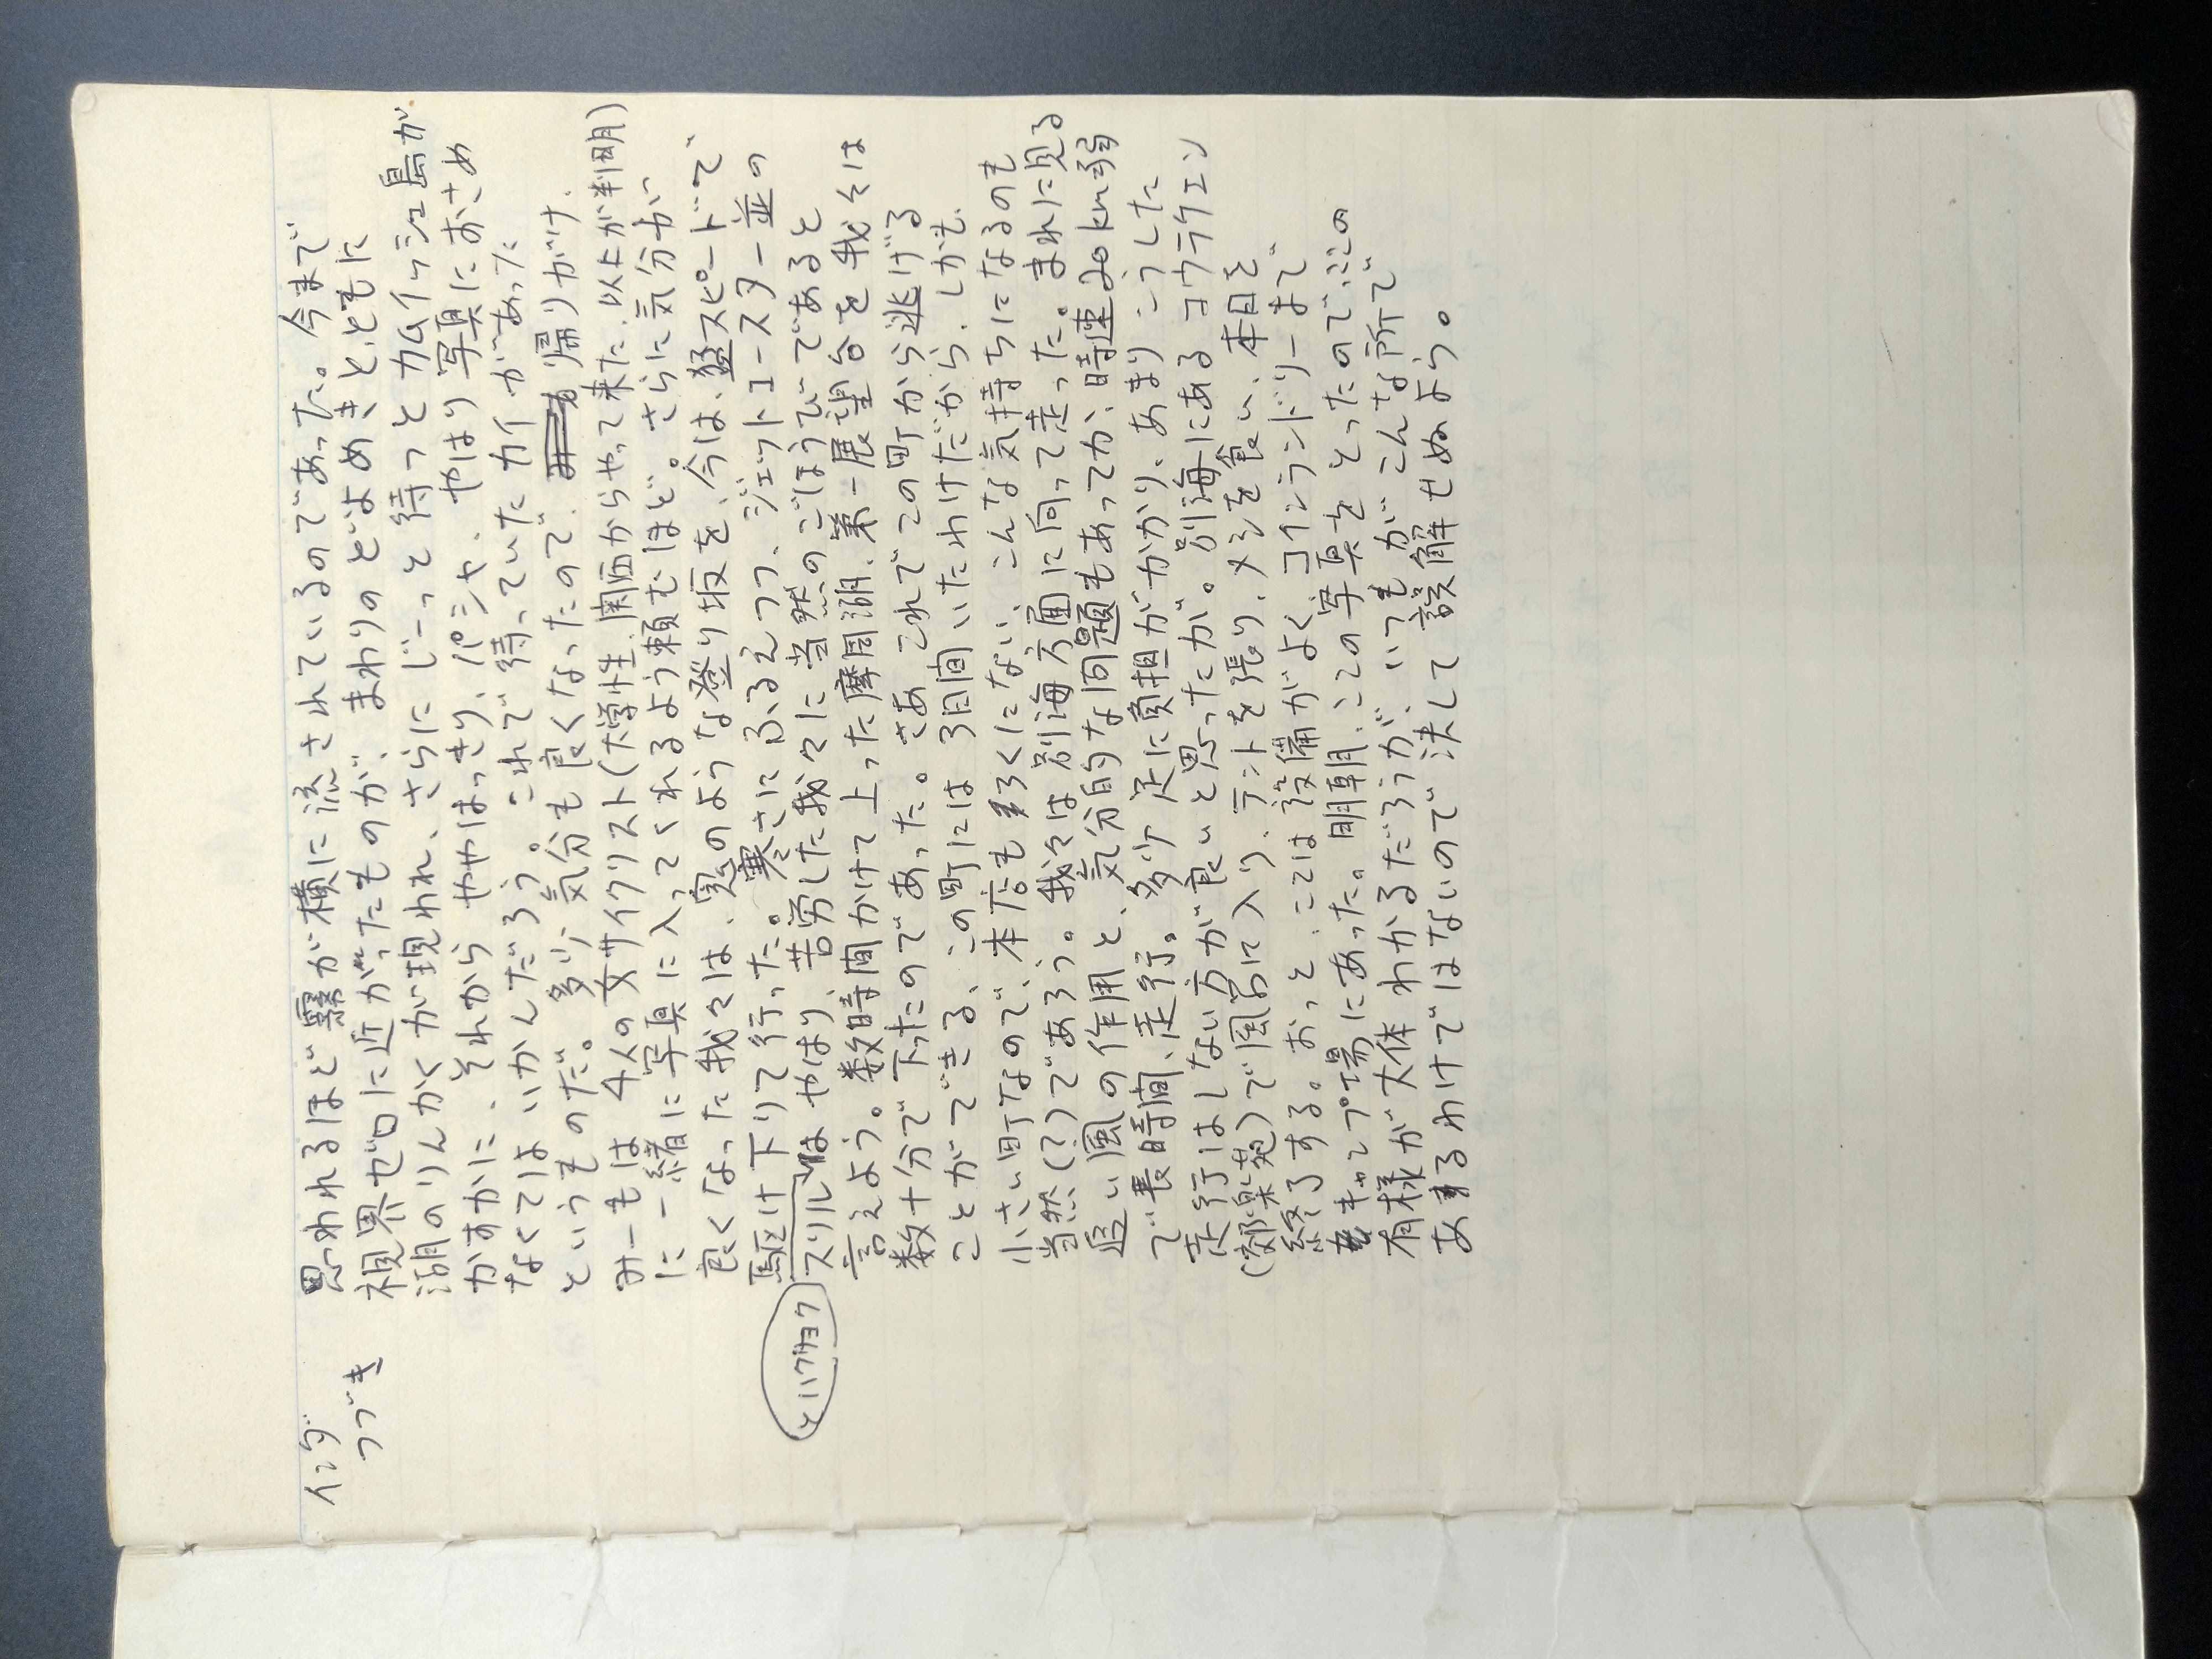 イシダ
つづき
思われるほど霧が横に流されているのであった。今まで
視界ゼロに近かったものが、まわりのどよめきと、ともに
湖のりんかくが現われ、さらにじーっと待っとカムイッシュ島が
かすかに、それから ややはっきり、パシャ、やはり写真におさめ
なくては いかんだろう。これで待っていたカイがあった
というものだ。多少、気分も良くなったので、帰りがけ、
みーもは 4人の女サイクリスト(大学性、関西からやって来た、以上が判明)
に一緒に写真に入ってくれるよう頼むほど。さらに気分が
良くなった我々は、鬼のような登り坂を、今は、猛スピードで
駆け下りて行った。寒さにふるえつつ、ジェットコースター並の
スリルは やはり、苦労した我々に当然のごほうびであると
言えよう。数時間かけて上った摩周湖、第一展望台を我々は
数十分で下ったのであった。さあ これでこの町から逃げる
ことができる、この町には 3日間いたわけだから、しかも、
小さい町なので、本店もろくにない、こんな気持ちになるのも
当然(?)であろう。我々は別海方面に向って走った。まれに見る
追い風の作用と、気分的な問題もあってか、時速30km弱
で長時間、走行。多少 足に負担がかかり、あまり こうした
走行はしない方が良いと思ったが。別海にある コウラクエン
(郊楽苑)で風呂に入り、テントを張り、メシを食い、本日を
終了する。おっと、ここは設備がよくコインランドリーまで
キャンプ場にあった。明朝、ここの写真をとったので、ここの
有様が大体 わかるだろうが、いつもが こんな所で
あるわけではないので決して誤解せぬよう。